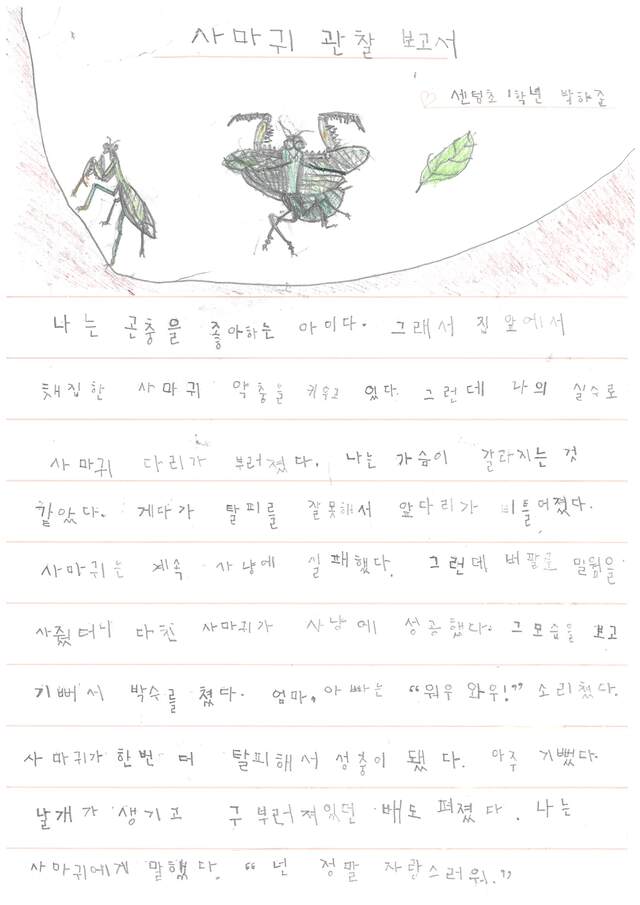 사마귀 관찰 보고서
센텀초 1학년 박하준
나는 곤충을 좋아하는 아이다. 그래서 집 앞에서
채집한 사마귀 약충을 키우고 있다. 그런데 나의 실수로
사마귀 다리가 부러졌다. 나는 가슴이 갈라지는 것
같았다. 게다가 탈피를 잘못해서 앞다리가 비틀어졌다.
사마귀는 계속 사냥에 실패했다. 그런데 버팔로 밀웜을
사줬더니 다친 사마귀가 사냥에 성공했다. 그 모습을 보고
기뻐서 박수를 쳤다. 엄마, 아빠는 "워우 와우!" 소리쳤다.
사마귀가 한번 더 탈피해서 성충이 됐다. 아주 기뻤다.
날개가 생기고 구부러져있던 배도 펴졌다. 나는
사마귀에게 말했다. "넌 정말 자랑스러워."